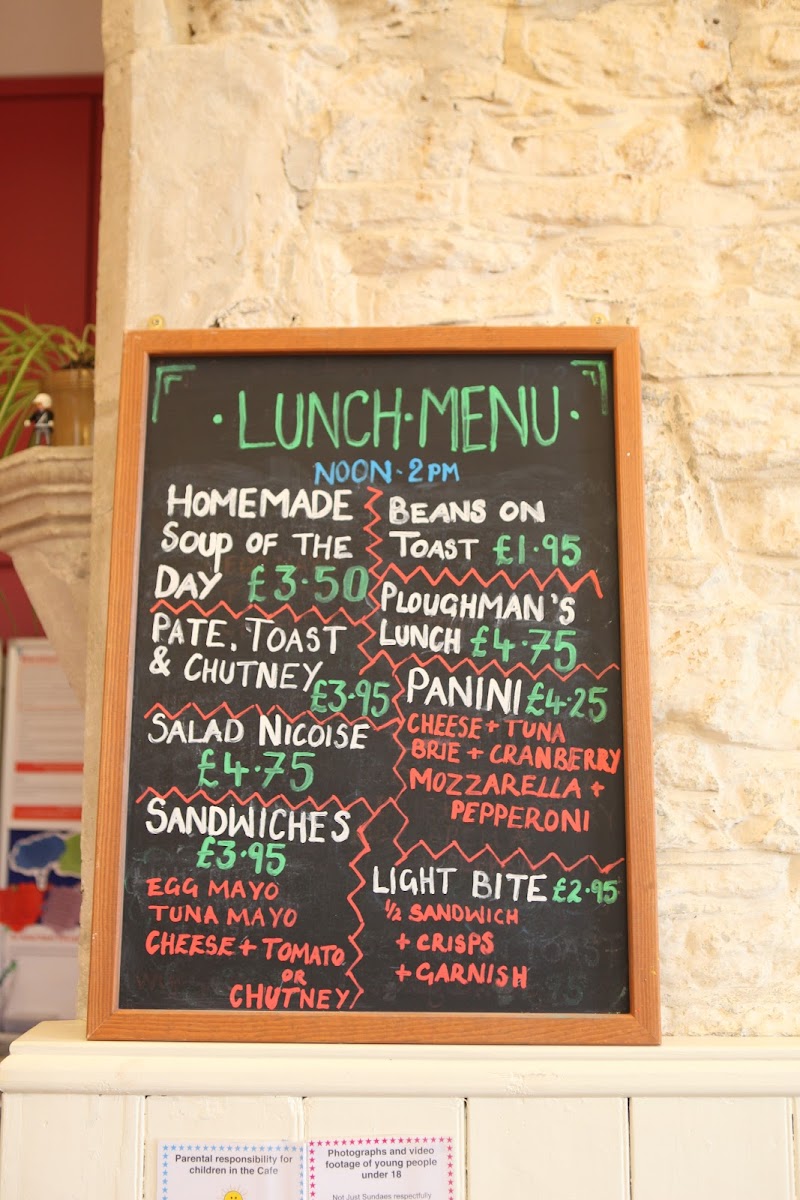 ·LUNCH·MENU·
NOON-2PM
HOMEMADE
SOUP OF THE
DAY £3·50
PATE, TOAST
& CHUTNEY
£3·95
SALAD NICOISE
£4·75
SANDWICHES
£3·95
EGG MAYO
TUNA MAYO
CHEESE + TOMATO
OR
CHUTNEY
BEANS ON
TOAST £1·95
PLOUGHMAN'S
LUNCH £4·75
PANINI £4·25
CHEESE + TUNA
BRIE + CRANBERRY
MOZZARELLA +
PEPPERONI
LIGHT BITE £2·95
½ SANDWICH
+ CRISPS
+ GARNISH
Parental responsibility for
children in the Cafe
Photographs and video
footage of young people
under 18
Not Just Sundaes respectfully